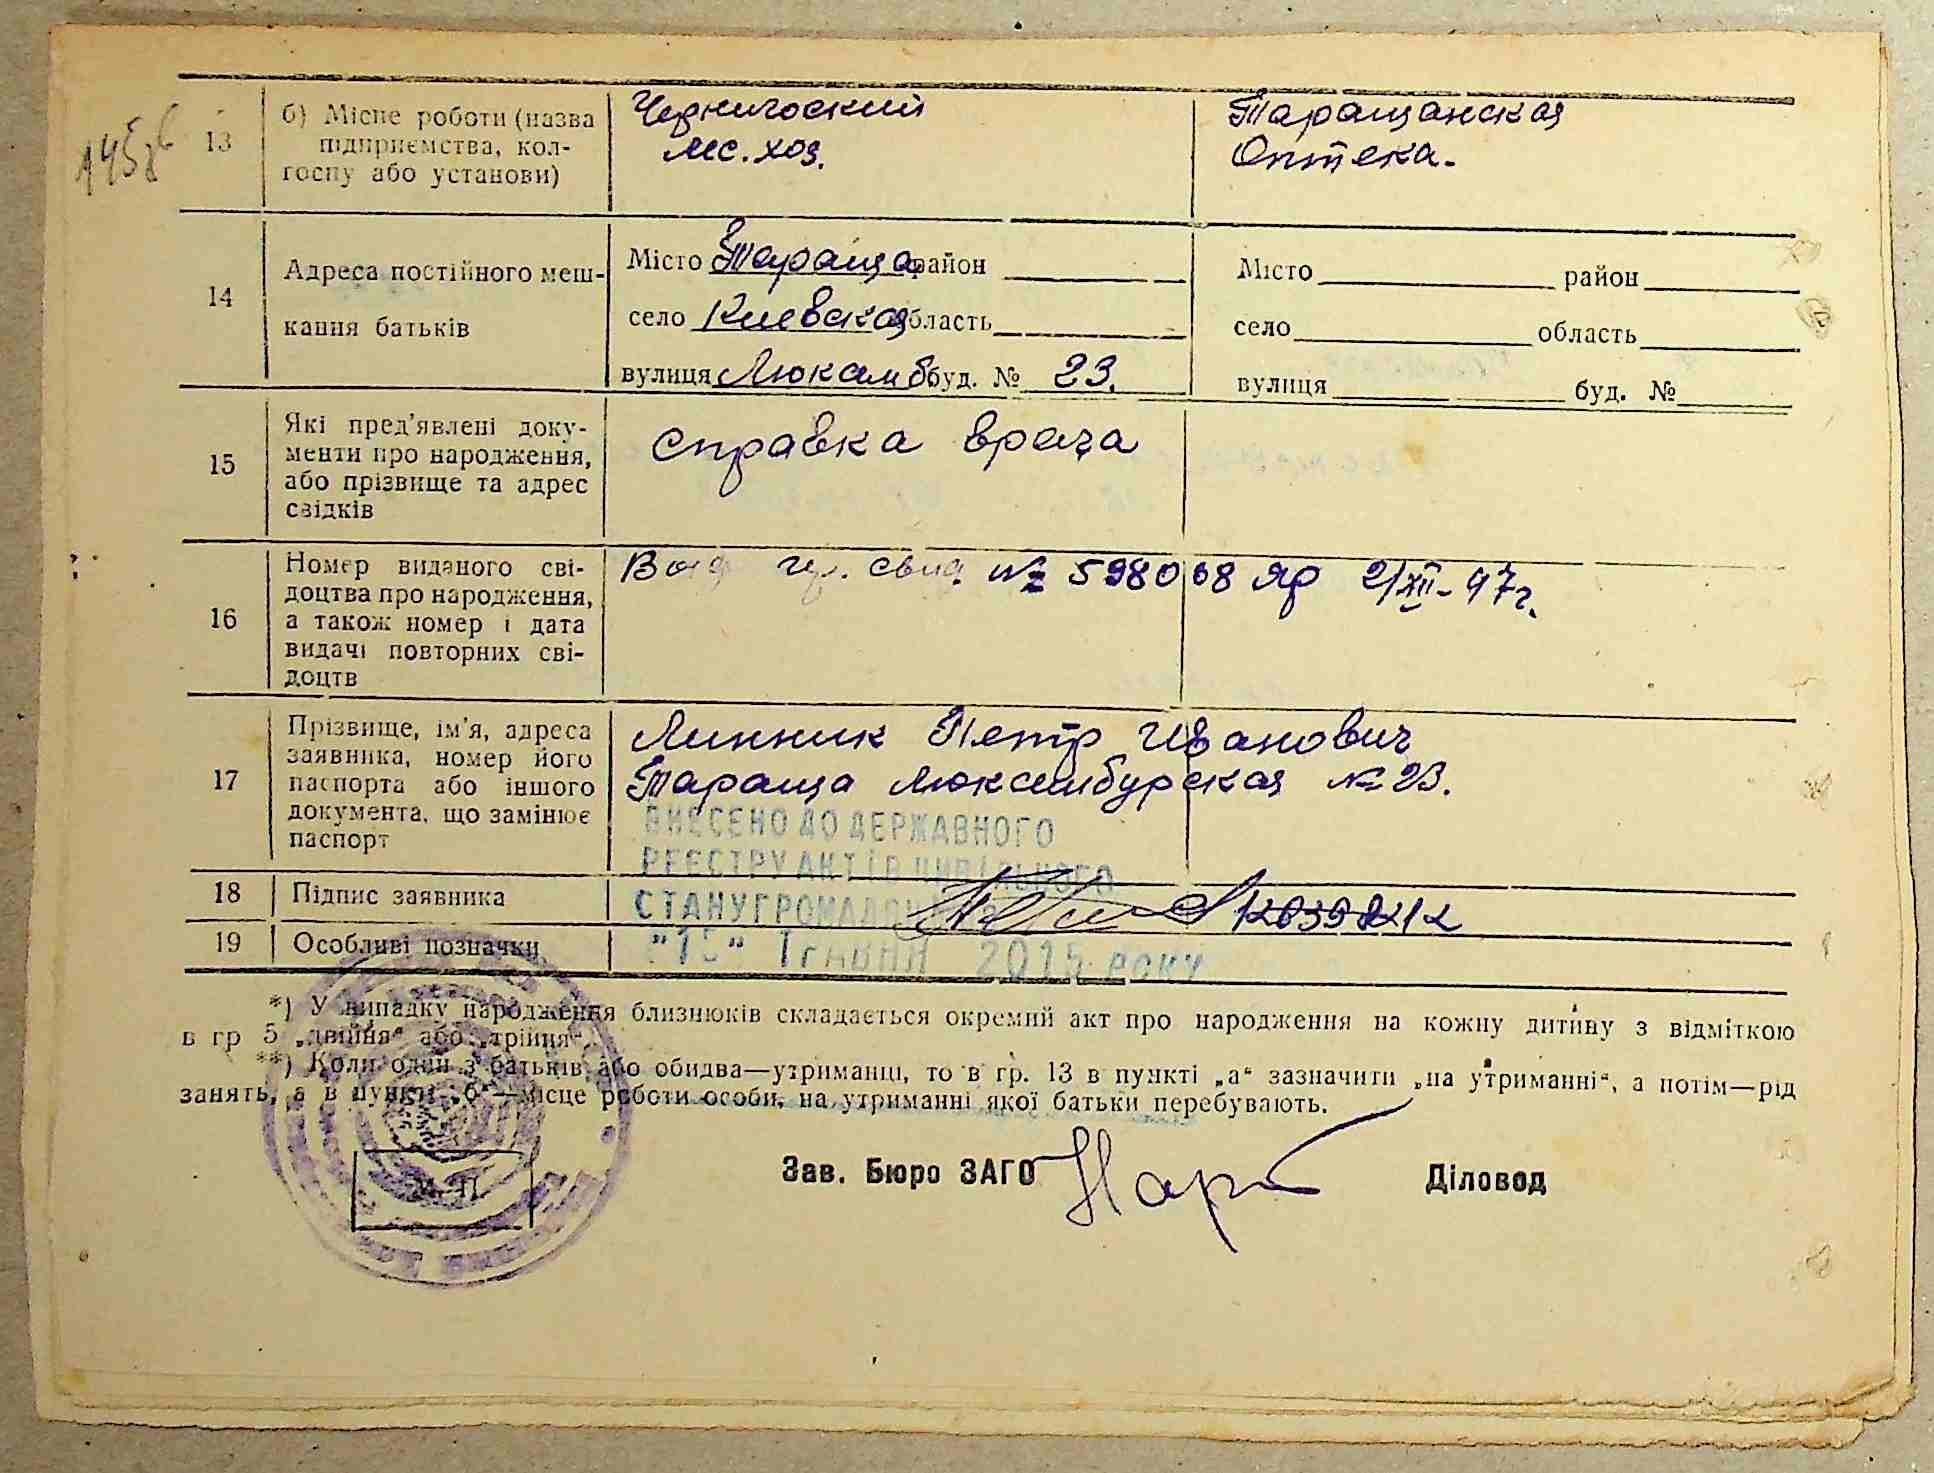 13
б) Місце роботи (назва
підприємства, кол-
госпу або установи)
лес. хоз.
Таращанская
Оптека.
14
Адреса постійного меш-
кання батьків
Місто Тараща район
село Киевская область
вулиця Люксемб буд. № 23.
Місто район
село область
вулиця буд. №
15
Які пред'явлені доку-
менти про народження,
або прізвище та адрес
свідків
справка врача
16
Номер виданого сві-
доцтва про народження,
а також номер і дата
видачі повторних сві-
доцтв
свид. № 598068 яр 2/XII-47г.
17
Прізвище, ім'я, адреса
заявника, номер його
паспорта або іншого
документа, що замінює
паспорт
Линник Петр Иванович
Тараща Люксембурская № 23.
ВНЕСЕНО ДО ДЕРЖАВНОГО
РЕЄСТРУ АКТІВ ЦИВІЛЬНОГО
СТАНУ ГРОМАДЯН
18
Підпис заявника
19
Особливі позначки
травня 2015 року
*) У випадку народження близнюків складається окремий акт про народження на кожну дитину з відміткою
в гр 5 „двійня“ або „трійня“.
**) Коли один з батьків або обидва—утриманці, то в гр. 13 в пункті „а“ зазначити „на утриманні“, а потім—рід
занять, а в пункті „б“—місце роботи особи, на утриманні якої батьки перебувають.
М. П.
Зав. Бюро ЗАГС
Діловод